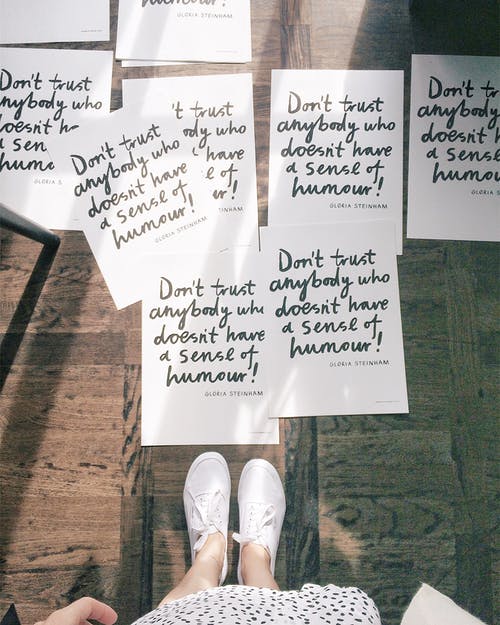 humour!
GLORIA STEINHAM
Don't trust
anybody who
doesn't
humo
GLORIA S
't trust
ody who
have
e of
r!
STEINHAM
Don't trust
anybody who
doesn't have
a sense of
humour!
GLORIA STEINHAM
Don't trust
anybody who
doesn't have
a sense of
humour!
GLORIA STEINHAM
Don't trust
anybody
doesn't h
a sens
humou
GLORIA
Don't trust
anybody wh
doesn't have
a sense of
humour!
GLORIA STEINHAM
Don't trust
anybody who
doesn't have
a sense of
humour!
GLORIA STEINHAM